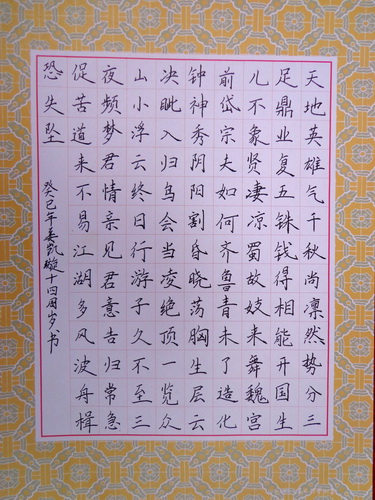 天地英雄气千秋尚凛然势分三
足鼎业复五铢钱得相能开国生
儿不象贤凄凉蜀故妓来舞魏宫
前岱宗夫如何齐鲁青未了造化
钟神秀阴阳割昏晓荡胸生层云
决眦入归鸟会当凌绝顶一览众
山小浮云终日行游子久不至三
夜频梦君情亲见君意告归常急
促苦道来不易江湖多风波舟楫
恐失坠 癸巳年姜凯璇十四周岁书